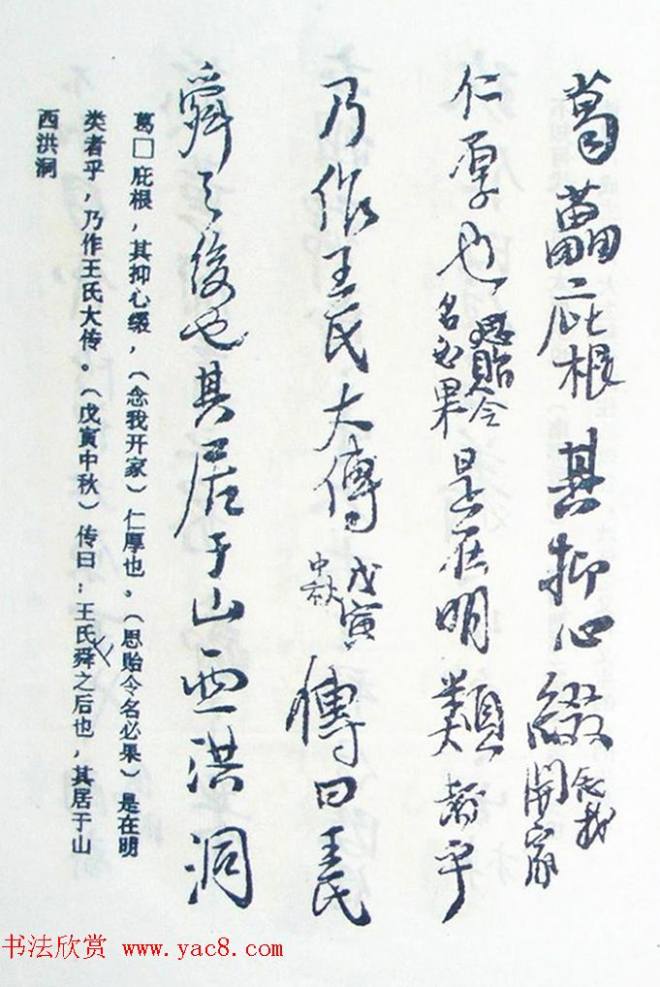 葛藟庇根其抑心缀念我開家
仁厚也思贻令名必果是在明類者乎
乃作王氏大傳戊寅中秋傳曰王氏
舜之後也其居于山西洪洞
葛□庇根，其抑心缀，（念我开家）仁厚也。（思贻令名必果）是在明
类者乎，乃作王氏大传。（戊寅中秋）传曰：王氏舜之后也，其居于山
西洪洞
书法欣赏 www.yac8.com